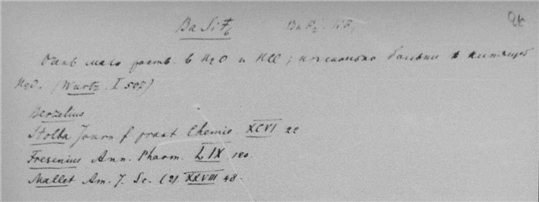 BaSiF6 BaF2. SiF4 26
Очень мало раств. в H2O и HCl; несколько больше в кипящей
H2O. (Wurtz. I 502)
Berzelius
Stolba Journ f. pract Chemie XCVI 22
Fresenius Ann. Pharm. LIX 120.
Mallet Am. J. Sc. (2) XXVIII 48.